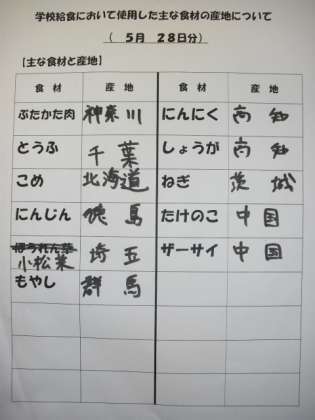 学校給食において使用した主な食材の産地について
( 5月 28日分)
【主な食材と産地】
食材 産地 食材 産地
ぶたかた肉 神奈川 にんにく 高知
とうふ 千葉 しょうが 高知
こめ 北海道 ねぎ 茨城
にんじん 徳島 たけのこ 中国
ほうれん草 小松菜 埼玉 ザーサイ 中国
もやし 群馬